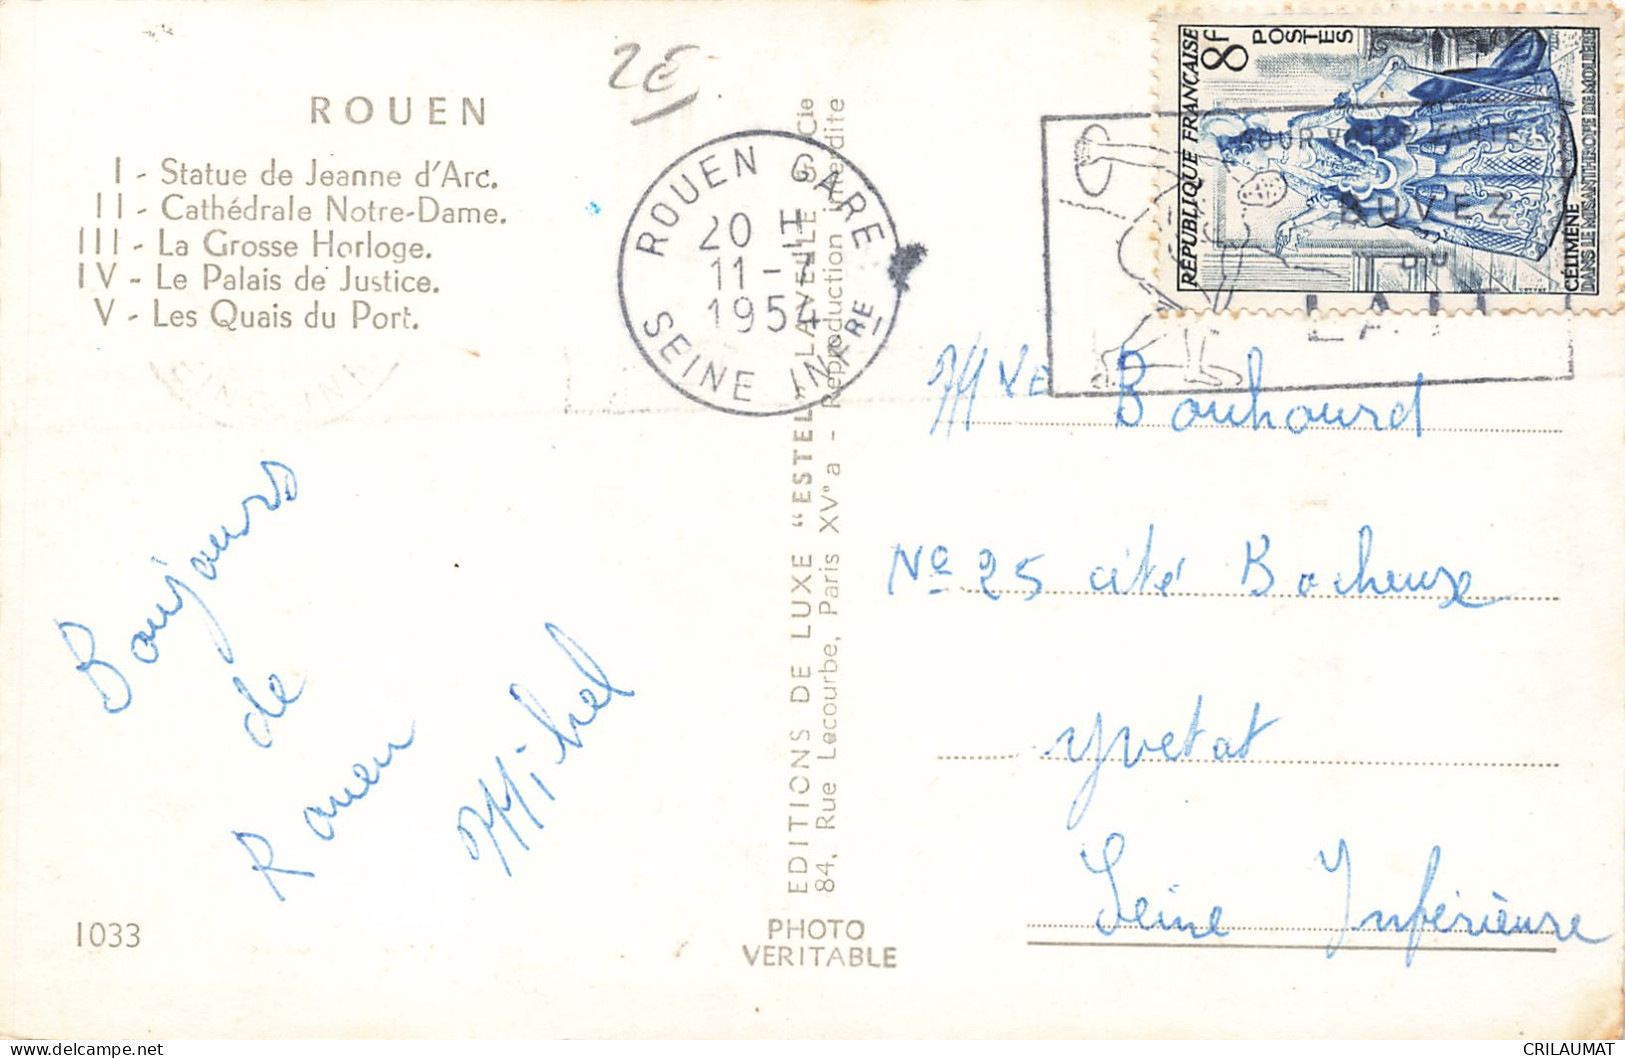 2E
ROUEN
I - Statue de Jeanne d'Arc.
II - Cathédrale Notre-Dame.
III - La Grosse Horloge.
IV - Le Palais de Justice.
V - Les Quais du Port.
Bonjours
de
Rouen
Mihel
1033
ROUEN GARE
20 H
11 - 4
1954
SEINE INFRE
EDITIONS DE LUXE "ESTEL" LAVELLE & Cie
84, Rue Lecourbe, Paris XVe a - Reproduction Interdite
PHOTO
VERITABLE
RÉPUBLIQUE FRANÇAISE
8F
POSTES
CÉLIMÈNE
DANS LE MISANTHROPE DE MOLIÈRE
POUR VOTRE SANTÉ
BUVEZ
DU
LAIT
Mle Bouhourd
No 25 cité Bocheuse
Yvetot
Seine Inférieure
CRILAUMAT